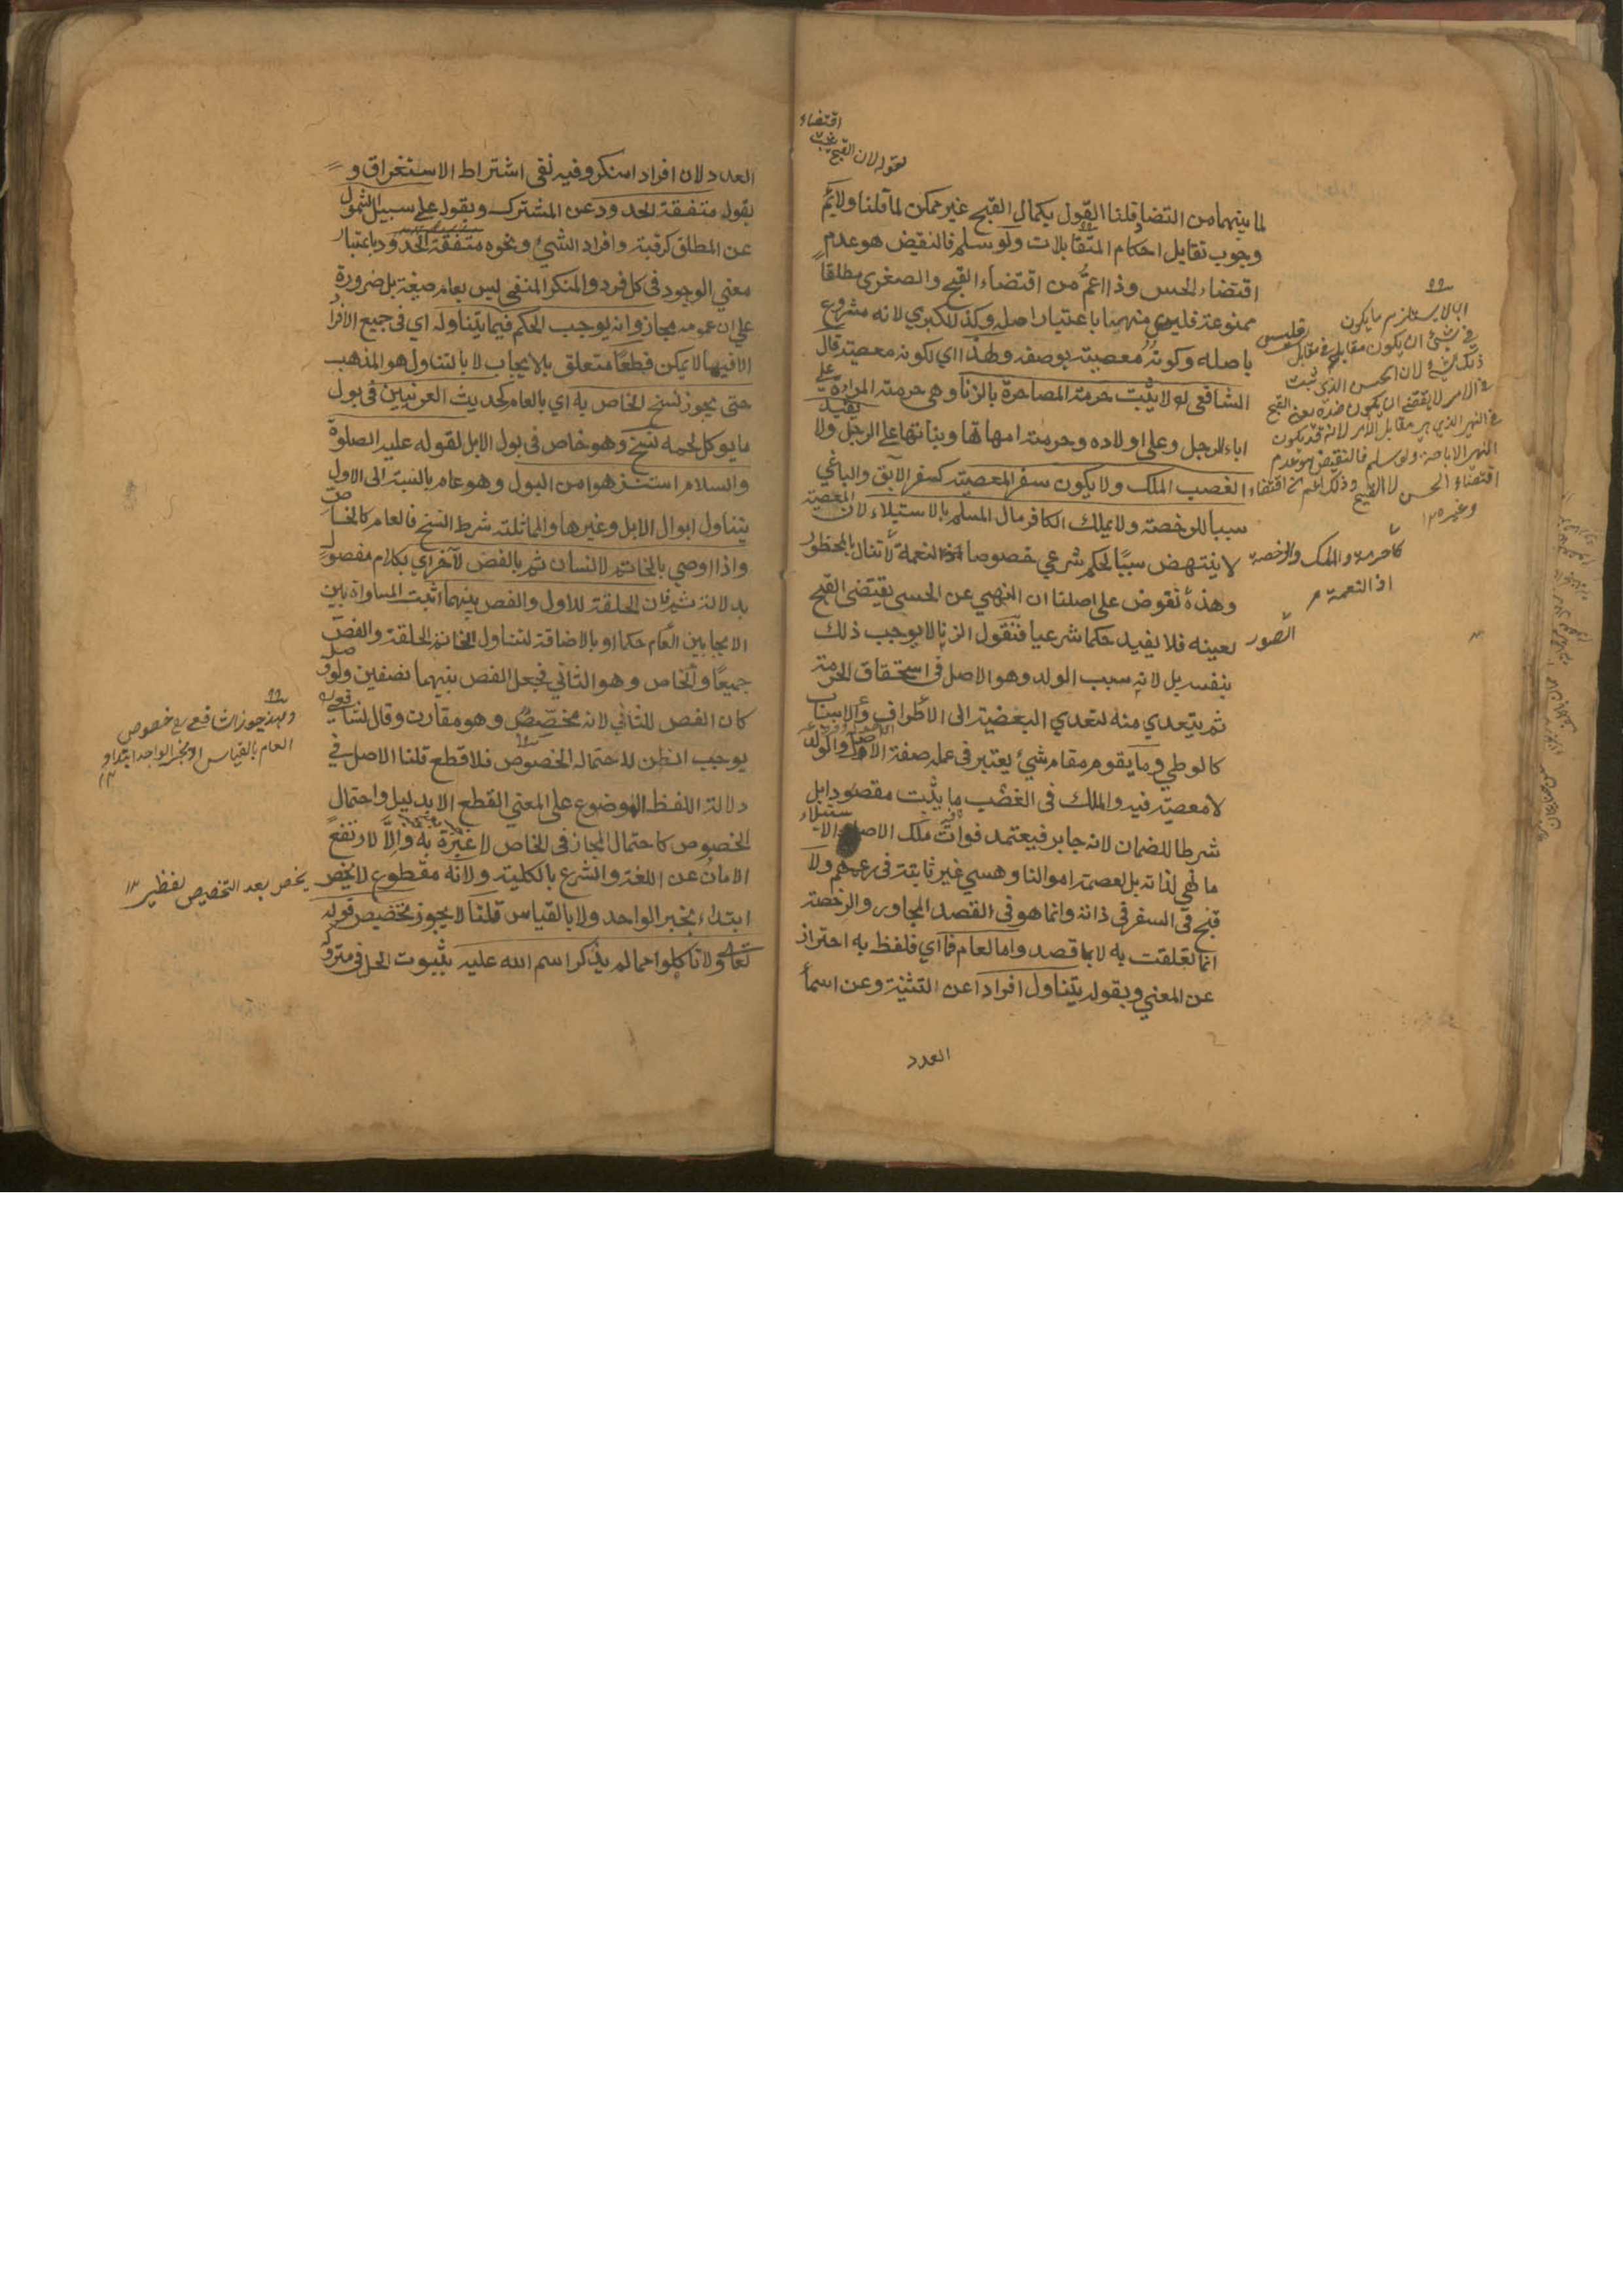 اقتضاء
لقوله لان القبح يثبت
لما بينهما من التضاد قلنا القول بكمال القبح غير ممكن لما قلنا ولانم
وجوب تقابل احكام المتقابلات ولو سلم فالنقيض هو عدم
اقتضاء الحسن وذا اعم من اقتضاء القبح والصغرى مطلقا
ممنوعة فليس منهيا باعتبار اصله وكذا الكبري لانه مشروع
باصله وكونه معصية بوصفه ولهذا اي لكونه معصية قال
الشافعي لا يثبت حرمة المصاهرة بالزنا وهي حرمة المراة على
اباء الرجل وعلى اولاده وحرمة امهاتها وبناتها على الرجل ولا يفيد
الغصب الملك ولا يكون سفر المعصية كسفر الآبق والباغي
سببا للرخصة ولا يملك الكافر مال المسلم بالاستيلاء لان المعصية
لا ينتهض سببا لحكم شرعي خصوصا النعمة لا تنال بالمحظور
وهذه نقوض على اصلنا ان النهي عن الحسي يقتضي القبح
لعينه فلا يفيد حكما شرعيا فنقول الزنا لا يوجب ذلك
بنفسه بل لانه سبب الولد وهو الاصل في استحقاق الحرمة
ثم يتعدي منه لتعدي البعضية الى الاطراف والاسباب
كالوطي وما يقوم مقام شيء يعتبر في عمله صفة الاصل والولد
لا معصية فيه والملك في الغصب ما يثبت مقصودا بل
شرطا للضمان لانه جابر فيعتمد فوات ملك الاصل والاستيلاء
ما نهي لذاته بل لعصمة اموالنا وهي غير ثابتة في زعمهم ولا
قبح في السفر في ذاته وانما هو في القصد المجاور والرخصة
انما تعلقت به لا بما قصد واما العام فما اي فلفظ به احتراز
عن المعني وبقوله يتناول افرادا عن التثنية وعن اسماء
العدد
انا لا يستلزم ما يكون
في شئ ان يكون مقابله في مقابل
ذلك الشئ لان الحسن الذي ثبت
في الامر لا يقتضي ان يكون ضده يعني القبح
في النهي الذي هو مقابل الامر لانه قد يكون
النهي الاباحة ولو سلم فالنقيض هو عدم
اقتضاء الحسن لا القبح وذلك اعم من اقتضاء
وغيره ١٢
كالحرمة والملك والرخصة
اذ النعمة
الصور
العدد لان افراد امنكر وفيه نفي اشتراط الاستغراق و
بقوله متفقة الحدود عن المشترك وبقوله على سبيل الشمول
عن المطلق كرقبة وافراد الشيئ ونحوه متفقة الحدود باعتبار
معني الوجود في كل فرد والمنكر المنفي ليس بعام صيغة بل ضرورة
علي ان عمومه مجاز وانه يوجب الحكم فيما يتناوله اي في جميع الافراد
الا فيما لا يمكن قطعا متعلق بالايجاب لا بالتناول هو المذهب
حتى يجوز نسخ الخاص به اي بالعام كحديث العرنيين في بول
ما يوكل لحمه نسخ وهو خاص في بول الابل لقوله عليه الصلوة
والسلام استنزهوا من البول وهو عام بالنسبة الى الاول
يتناول ابوال الابل وغيرها والمماثلة شرط النسخ فالعام كالخاص
واذا اوصي بالخاتم لانسان ثم بالفص لآخر اي بكلام مفصول
بدلالة ثم فان الحلقة للاول والفص بينهما اثبت المساواة بين
الايجابين العام حكما او بالاضافة لتناول الخاتم الحلقة والفص
جميعا والخاص وهو الثاني فجعل الفص بينهما نصفين ولو وصل
كان الفص للثاني لانه مخصص وهو مقارن وقال الشافعي
يوجب الظن لاحتماله الخصوص فلا قطع قلنا الاصل في
دلالة اللفظ الموضوع على المعني القطع الا بدليل واحتمال
الخصوص كاحتمال المجاز في الخاص لا عبرة به والا لارتفع
الامان عن اللغة والشرع بالكلية ولانه مقطوع لا يخص
ابتداء بخبر الواحد ولا بالقياس قلنا لا يجوز تخصيص قوله
تعالى ولا تاكلوا مما لم يذكر اسم الله عليه بثبوت الحل في متروك
ولهذا جوز الشافعي رح خصوص
العام بالقياس او بخبر الواحد ابتداء
١٢
يخص بعد التخصيص بظنير ١٢